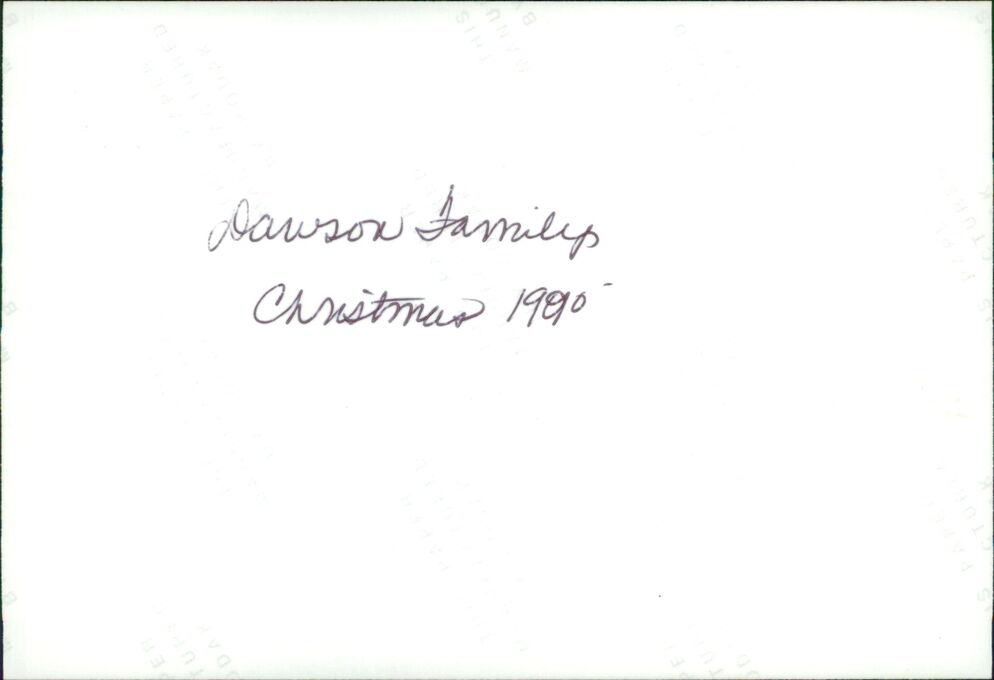 Dawson Family
Christmas 1990